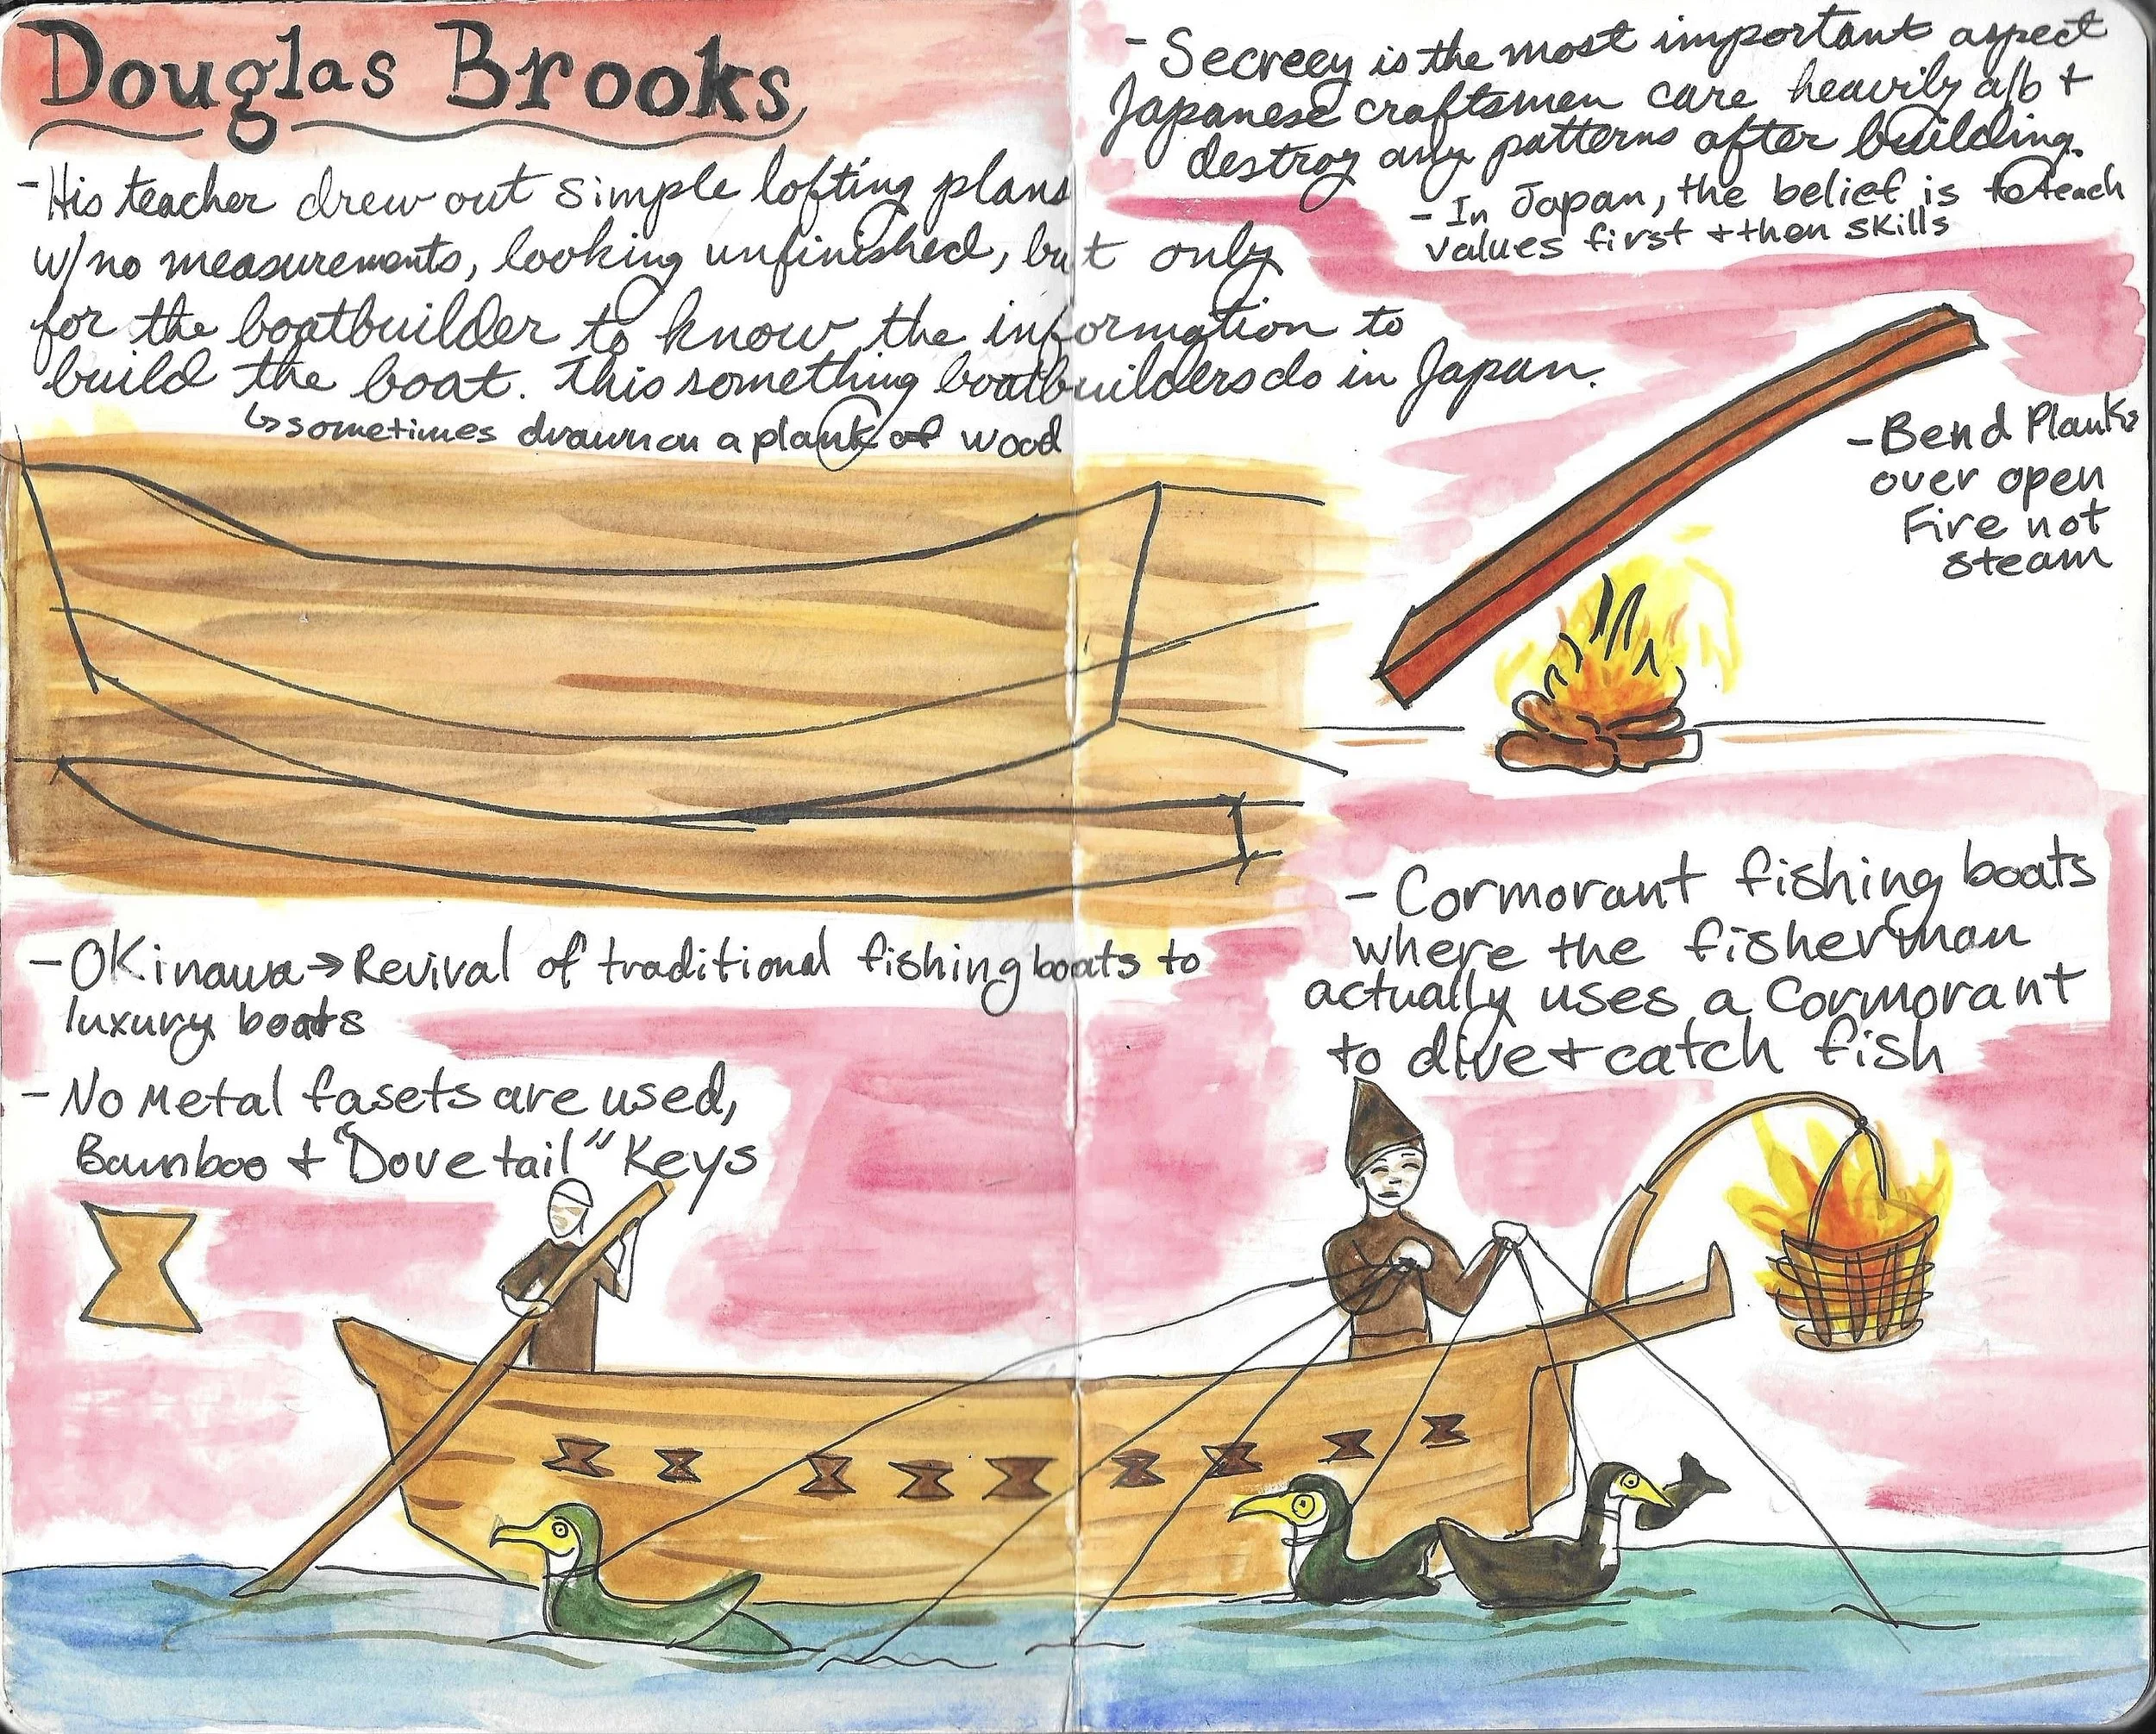 Douglas Brooks
- His teacher drew out simple lofting plans
w/ no measurements, looking unfinished, but only
for the boatbuilder to know the information to
build the boat. This something boatbuilders do in Japan.
↳ sometimes drawn on a plank of wood
- Secrecy is the most important aspect
Japanese craftsmen care heavily a/b +
destroy any patterns after building.
- In Japan, the belief is to teach
values first + then skills
- Bend Planks
over open
Fire not
steam
- Okinawa → Revival of traditional fishing boats to
luxury boats
- No Metal fasets are used,
Bamboo + "Dove tail" Keys
- Cormorant fishing boats
where the fisherman
actually uses a Cormorant
to dive + catch fish